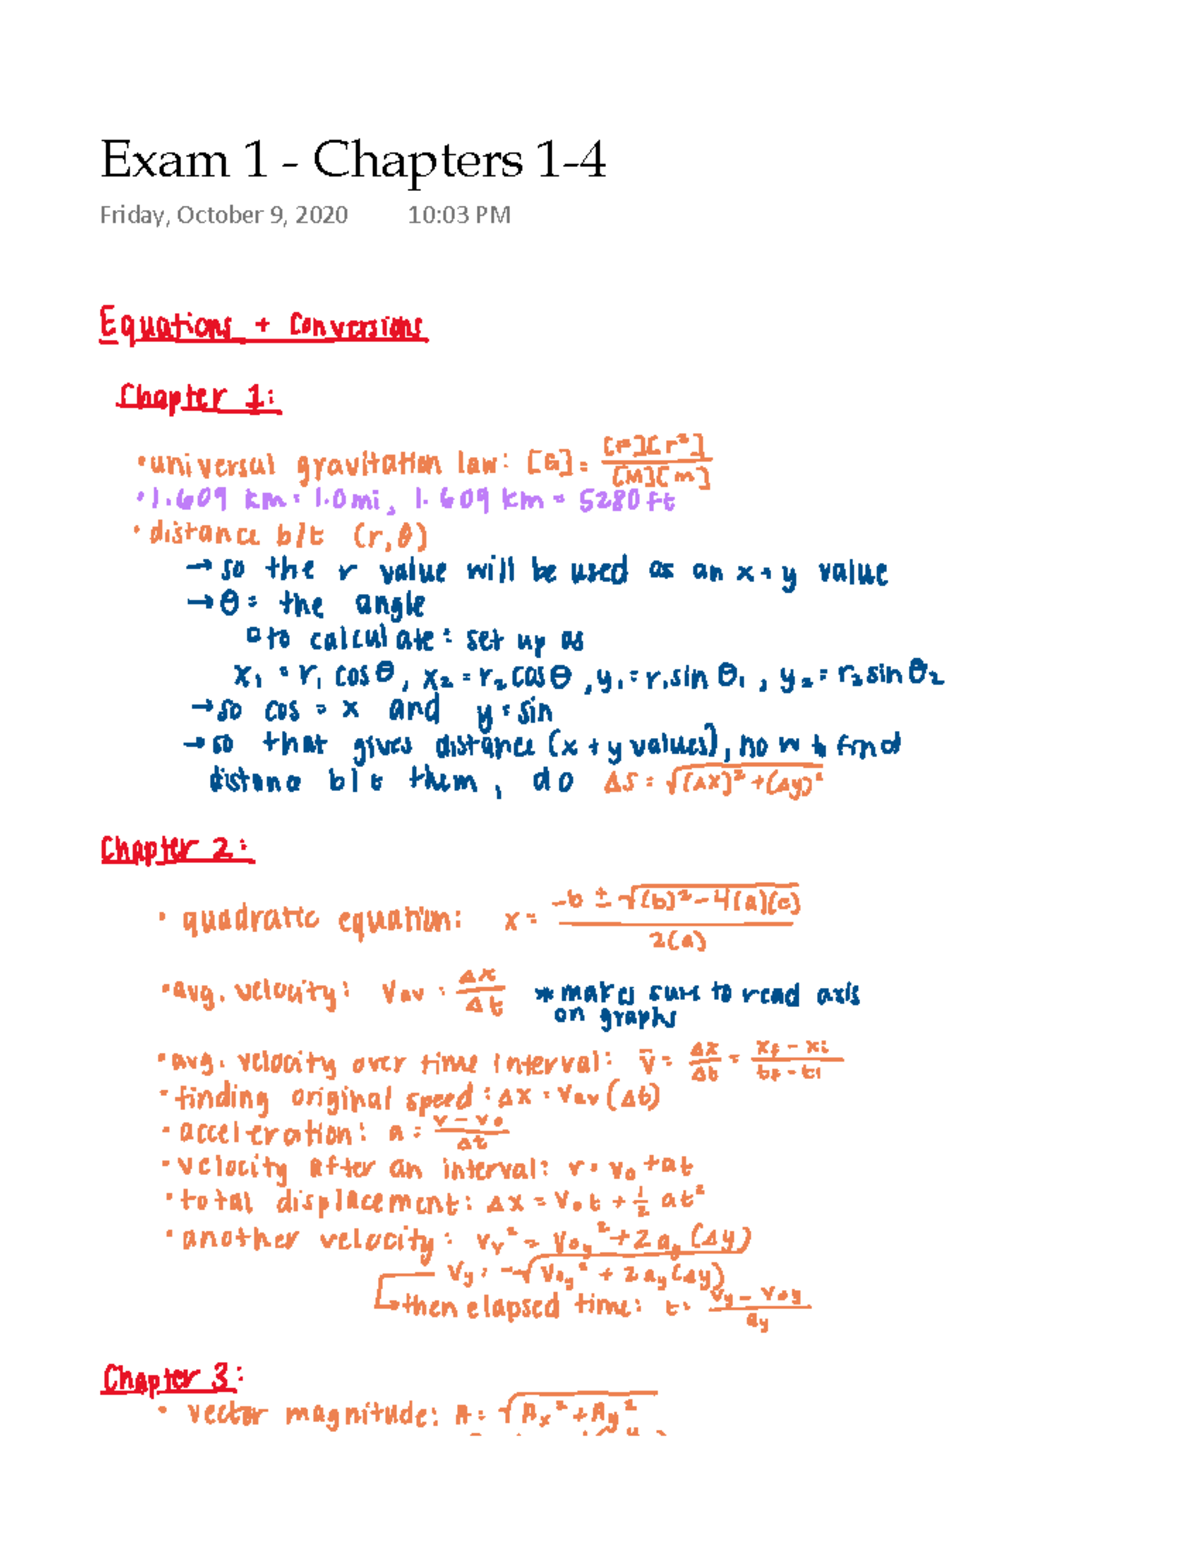 Exam 1 - Chapters 1-4
Friday, October 9, 2020 10:03 PM
Equations + Conversions
Chapter 1:
• universal gravitation law: [G] = [F][r²] / [M][m]
• 1.609 km = 1.0 mi, 1.609 km = 5280 ft
• distance b/t (r, θ)
→ so the r value will be used as an x + y value
→ θ = the angle
▫ to calculate: set up as
x₁ = r₁ cos θ, x₂ = r₂ cos θ, y₁ = r₁ sin θ₁, y₂ = r₂ sin θ₂
→ so cos = x and y = sin
→ so that gives distance (x + y values), now to find
distance b/t them, do Δs = √(Δx)² + (Δy)²
Chapter 2:
• quadratic equation: x = -b ± √(b)² - 4(a)(c) / 2(a)
• avg. velocity: Vav = Δx / Δt * makes sure to read axis
on graphs
• avg. velocity over time interval: v̄ = Δx / Δt = xf - xi / tf - ti
• finding original speed: Δx = Vav (Δt)
• acceleration: a = v - v₀ / Δt
• velocity after an interval: v = v₀ + at
• total displacement: Δx = v₀t + ½ at²
• another velocity: vy² = v₀y² + 2ay (Δy)
Vy = -√v₀y² + 2ay(Δy)
↳ then elapsed time: t = vy - v₀y / ay
Chapter 3:
• vector magnitude: A = √Ax² + Ay²